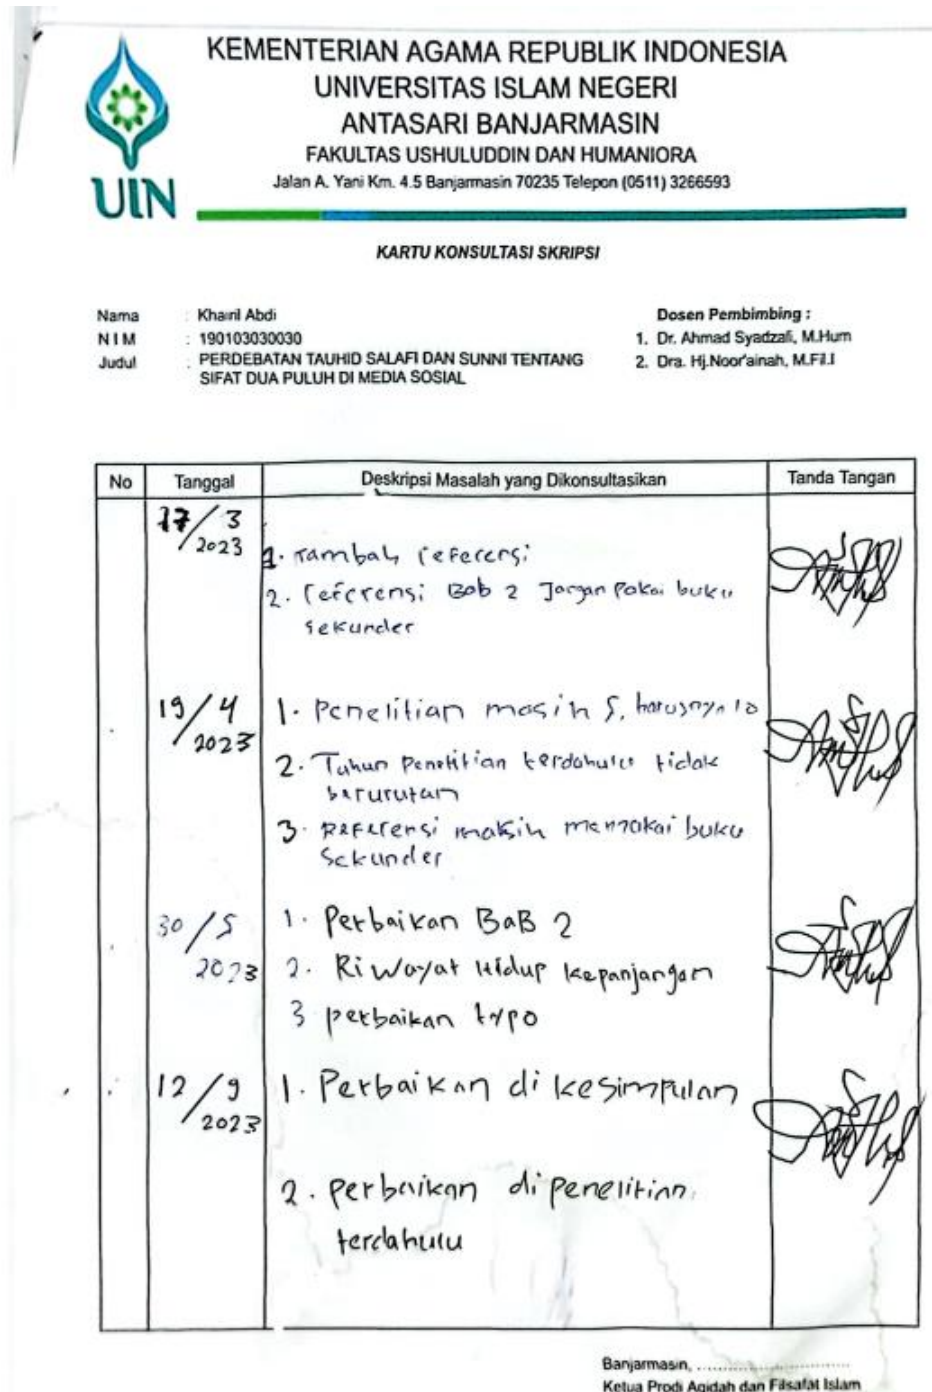 KEMENTERIAN AGAMA REPUBLIK INDONESIA
UNIVERSITAS ISLAM NEGERI
ANTASARI BANJARMASIN
FAKULTAS USHULUDDIN DAN HUMANIORA
Jalan A. Yani Km. 4.5 Banjarmasin 70235 Telepon (0511) 3266593
UIN
KARTU KONSULTASI SKRIPSI
Nama : Khairil Abdi
N I M : 190103030030
Judul : PERDEBATAN TAUHID SALAFI DAN SUNNI TENTANG
SIFAT DUA PULUH DI MEDIA SOSIAL
Dosen Pembimbing :
1. Dr. Ahmad Syadzali, M.Hum
2. Dra. Hj.Noor'ainah, M.Fil.I
No Tanggal Deskripsi Masalah yang Dikonsultasikan Tanda Tangan
17/3
2023
1. Tambah referensi
2. referensi Bab 2 Jangan Pakai buku
sekunder
19/4
2023
1. Penelitian masih 5, harusnya 10
2. Tahun Penelitian terdahulu tidak
berurutan
3. Referensi maksih memakai buku
Sekunder
30/5
2023
1. Perbaikan BaB 2
2. Riwayat Hidup kepanjangan
3 perbaikan typo
12/9
2023
1. Perbaikan di kesimpulan
2. perbaikan di penelitian
terdahulu
Banjarmasin, ..............................
Ketua Prodi Aqidah dan Filsafat Islam